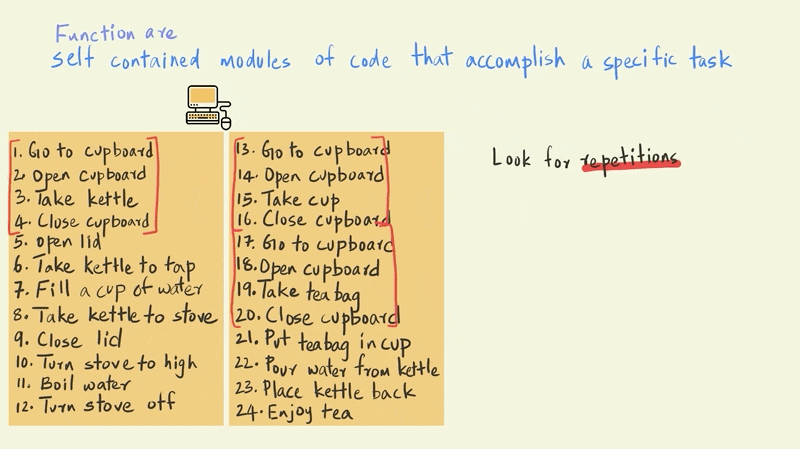 Function are
self contained modules of code that accomplish a specific task
1. Go to cupboard
2. Open cupboard
3. Take kettle
4. Close cupboard
5. Open lid
6. Take kettle to tap
7. Fill a cup of water
8. Take kettle to stove
9. Close lid
10. Turn stove to high
11. Boil water
12. Turn stove off
13. Go to cupboard
14. Open cupboard
15. Take cup
16. Close cupboard
17. Go to cupboard
18. Open cupboard
19. Take tea bag
20. Close cupboard
21. Put teabag in cup
22. Pour water from kettle
23. Place kettle back
24. Enjoy tea
Look for repetitions